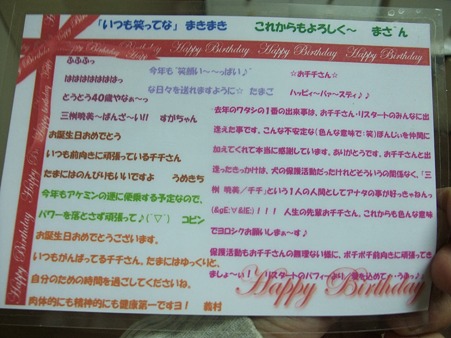 「いつも笑ってな」 まきまき
これからもよろしく〜 まさ ん
Happy Birthday Happy Birthday Happy Birthday
ふふふっ
はははははははっ
とうとう40歳やなぁ〜っ
三桝暁美〜ばんざ〜い!! すがちゃん
お誕生日おめでとう
いつも前向きに頑張っているチチさん
たまにはのんびりもいいですよ うめきち
今年もアケミンの運に便乗する予定なので、
パワーを落とさず頑張って♪(´▽｀) コビン
お誕生日おめでとうございます。
いつもがんばってるチチさん。たまにはゆっくりと、
自分のための時間を過ごしてくださいね。
肉体的にも精神的にも健康第一ですヨ! 義村
今年も゛笑顔い〜〜っぱい♪゛
な日々を送れますように☆ たまこ
☆お チチさん☆
ハッピィ〜バァ〜スティ♪♪
去年のワタシの1番の出来事は、おチチさん・リスタートのみんなに出
逢えた事です。こんな不安定な(色んな意味で:笑)ぽんしぃを仲間に
加えてくれて本当に感謝しています。ありがとうです。おチチさんと出
逢ったきっかけは、犬の保護活動だったけれどそういうの関係なく、「三
桝 暁美/チチ」という1人の人間としてアナタの事が好っきゃねんっ
!!! 人生の先輩おチチさん。これからも色んな意味
でヨロシクお願いしまぁ〜す♪
保護活動もおチチさんの無理ない様に、ボチボチ前向きに頑張ってき
ましょ〜ぃ!
Happy Birthday